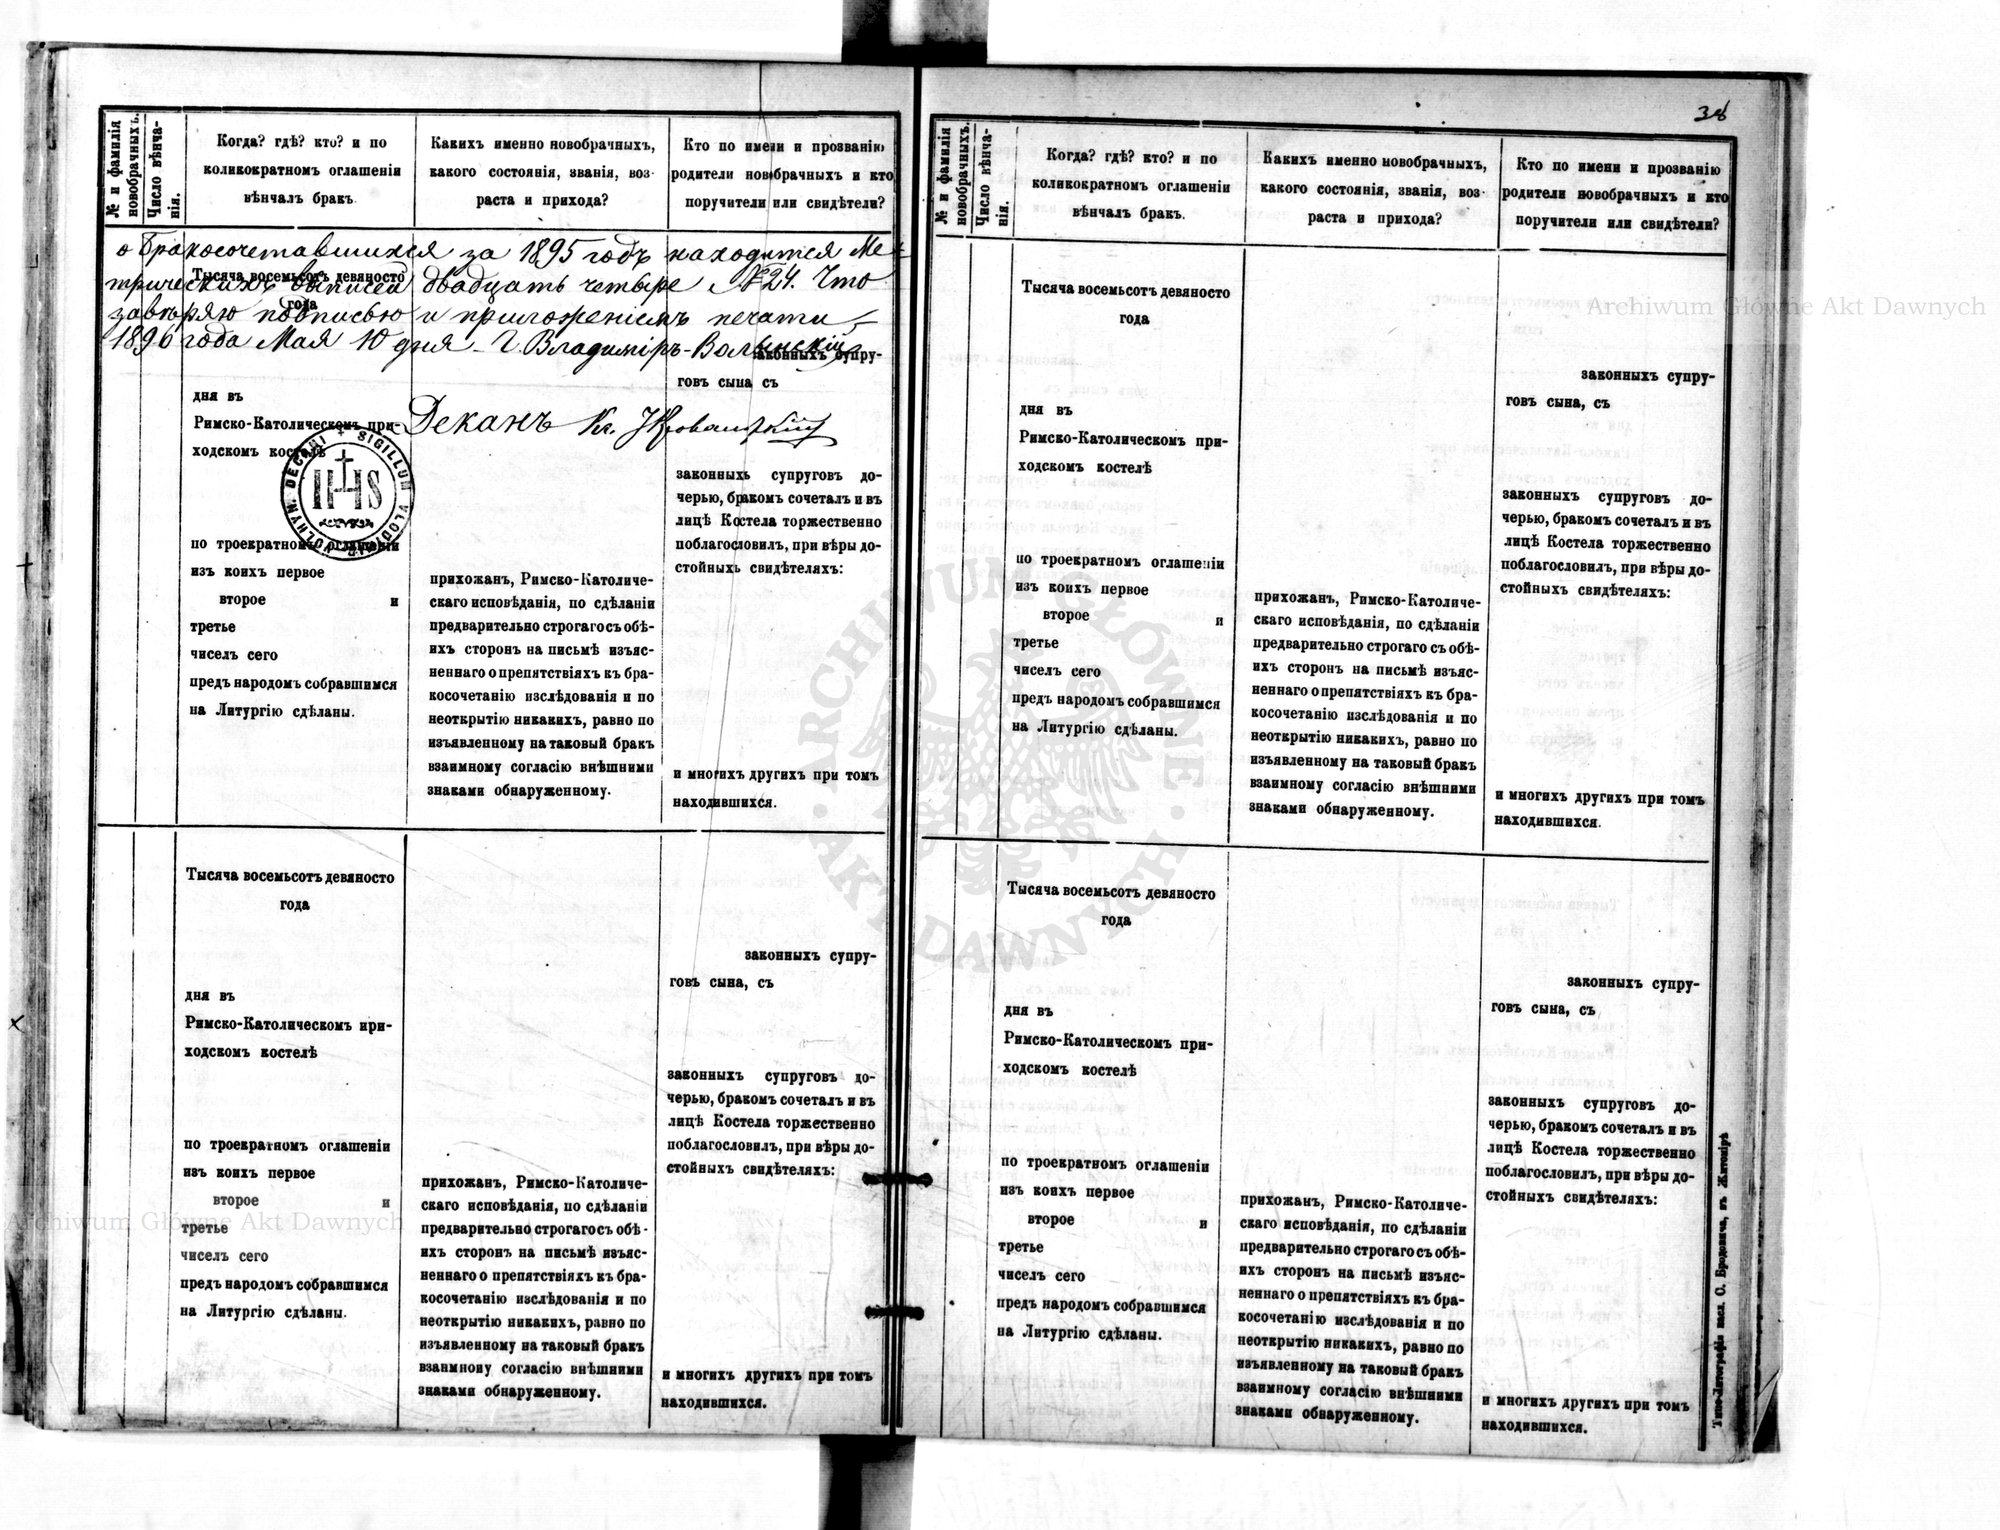 38
№ и фамилія новобрачныхъ.
Число вѣнча-
нія.
Когда? гдѣ? кто? и по
коликократномъ оглашеніи
вѣнчалъ бракъ.
Какихъ именно новобрачныхъ,
какого состоянія, званія, воз-
раста и прихода?
Кто по имени и прозванію
родители новобрачныхъ и кто
поручители или свидѣтели?
о Бракосочетавшихся за 1895 годъ находится Ме-
трическихъ выписей двадцать четыре №24. Что
завѣряю подписью и приложеніемъ печати
1896 года Мая 10 дня. Г. Владиміръ-Волынскій
Деканъ Кс.
SIGILLUM DECANI VLODIMIR VOLHYN.
IHS
Тысяча восемьсотъ девяносто
года
дня въ
Римско-Католическомъ при-
ходскомъ костелѣ
по троекратномъ оглашеніи
изъ коихъ первое
второе и
третье
чиселъ сего
предъ народомъ собравшимся
на Литургію сдѣланы.
прихожан, Римско-Католиче-
скаго исповѣданія, по сдѣланіи
предварительно строгаго съ обѣ-
ихъ сторонъ на письмѣ изъяс-
неннаго о препятствіяхъ къ бра-
косочетанію изслѣдованія и по
неоткрытію никакихъ, равно по
изъявленному на таковый бракъ
взаимному согласію внѣшними
знаками обнаруженному.
законныхъ супру-
говъ сына съ
законныхъ супруговъ до-
черью, бракомъ сочеталъ и въ
лицѣ Костела торжественно
поблагословил, при вѣры до-
стойныхъ свидѣтеляхъ:
и многихъ другихъ при томъ
находившихся.
Тысяча восемьсотъ девяносто
года
дня въ
Римско-Католическомъ при-
ходскомъ костелѣ
по троекратномъ оглашеніи
изъ коихъ первое
второе и
третье
чиселъ сего
предъ народомъ собравшимся
на Литургію сдѣланы.
прихожан, Римско-Католиче-
скаго исповѣданія, по сдѣланіи
предварительно строгаго съ обѣ-
ихъ сторонъ на письмѣ изъяс-
неннаго о препятствіяхъ къ бра-
косочетанію изслѣдованія и по
неоткрытію никакихъ, равно по
изъявленному на таковый бракъ
взаимному согласію внѣшними
знаками обнаруженному.
законныхъ супру-
говъ сына, съ
законныхъ супруговъ до-
черью, бракомъ сочеталъ и въ
лицѣ Костела торжественно
поблагословил, при вѣры до-
стойныхъ свидѣтеляхъ:
и многихъ другихъ при томъ
находившихся.
№ и фамилія новобрачныхъ.
Число вѣнча-
нія.
Когда? гдѣ? кто? и по
коликократном оглашеніи
вѣнчалъ бракъ.
Какихъ именно новобрачныхъ,
какого состоянія, званія, воз-
раста и прихода?
Кто по имени и прозванію
родители новобрачныхъ и кто
поручители или свидѣтели?
Тысяча восемьсотъ девяносто
года
дня въ
Римско-Католическомъ при-
ходскомъ костелѣ
по троекратном оглашеніи
изъ коихъ первое
второе и
третье
чиселъ сего
предъ народомъ собравшимся
на Литургію сдѣланы.
прихожан, Римско-Католиче-
скаго исповѣданія, по сдѣланіи
предварительно строгаго съ обѣ-
ихъ сторонъ на письмѣ изъяс-
неннаго о препятствіяхъ къ бра-
косочетанію изслѣдованія и по
неоткрытію никакихъ, равно по
изъявленному на таковый бракъ
взаимному согласію внѣшними
знаками обнаруженному.
законныхъ супру-
говъ сына, съ
законныхъ супруговъ до-
черью, бракомъ сочеталъ и въ
лицѣ Костела торжественно
поблагословил, при вѣры до-
стойныхъ свидѣтеляхъ:
и многихъ другихъ при томъ
находившихся.
Тысяча восемьсотъ девяносто
года
дня въ
Римско-Католическомъ при-
ходскомъ костелѣ
по троекратном оглашеніи
изъ коихъ первое
второе и
третье
чиселъ сего
предъ народомъ собравшимся
на Литургію сдѣланы.
прихожан, Римско-Католиче-
скаго исповѣданія, по сдѣланіи
предварительно строгаго съ обѣ-
ихъ сторонъ на письмѣ изъяс-
неннаго о препятствіяхъ къ бра-
косочетанію изслѣдованія и по
неоткрытію никакихъ, равно по
изъявленному на таковый бракъ
взаимному согласію внѣшними
знаками обнаруженному.
законныхъ супру-
говъ сына, съ
законныхъ супруговъ до-
черью, бракомъ сочеталъ и въ
лицѣ Костела торжественно
поблагословил, при вѣры до-
стойныхъ свидѣтеляхъ:
и многихъ другихъ при томъ
находившихся.
Типо-Литографія насл. С. Бродовича, въ Житомірѣ
Archiwum Główne Akt Dawnych
ARCHIWUM GŁÓWNE AKT DAWNYCH
Archiwum Główne Akt Dawnych